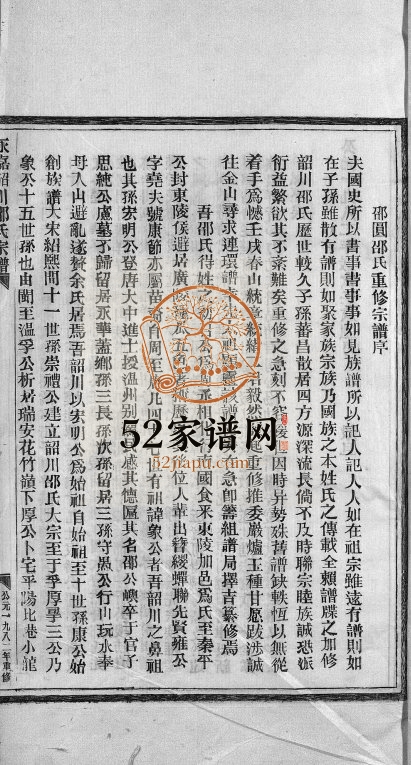 邵園邵氏重修宗譜序
夫國史所以書事書事事如見族譜所以記人記人人如在祖宗雖遠有譜則如
在子孫雖散有譜則如聚家族宗族乃國族之本姓氏之傳載全賴譜牒之加修
韶川邵氏歷世較久子孫蕃昌散居四方源深流長倘不及時聯宗睦族誠恐派
衍益繁欲其不紊難矣重修之急刻不容緩因時異勢殊舊譜缺軼恆以無從
着手爲憾壬戌春山統章毅然起重修推委嚴爐玉種甘愿跋涉誠
往金山尋求連環譜急卽籌組譜局擇吉纂修焉
吾邵氏得姓公丞相國食來東陵加邑爲氏至秦平
公封東陵侯避居廣位人輩出簪纓蟬聯先賢雍公
字堯夫號康節亦屬苗裔自周至有祖諱象公者吾韶川之鼻祖
也其孫宏明公登唐大中進士授溫州別感其德匾其名邵公嶼卒于官子
思純公廬墓不歸留居永華蓋鄉孫三長次孫留居三孫守愚公行山玩水奉
母入山避亂遂贅余氏居焉吾韶川以宏明公爲始祖自始祖至十世孫康公始
創族譜大宋紹熙間十一世孫崇禮公建立韶川邵氏大宗至于孚厚學三公乃
象公十五世孫也由閩至溫孚公析居瑞安花竹嶺下厚公卜宅平陽比巷小龍
永嘉韶川邵氏宗譜
公元一九八二年重修
52家谱网
52jiapu.com